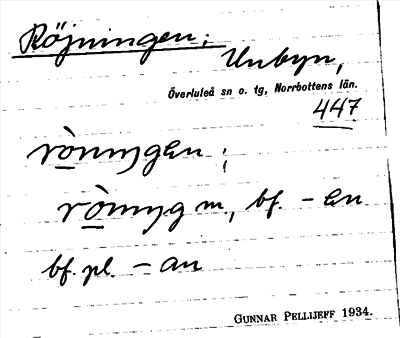 Röjningen;
Unbyn,
Överluleå sn o. tg, Norrbottens län.
447
rònıngen ;
rònıng m., bf. -en
bf. pl. -an
GUNNAR PELLIJEFF 1934.